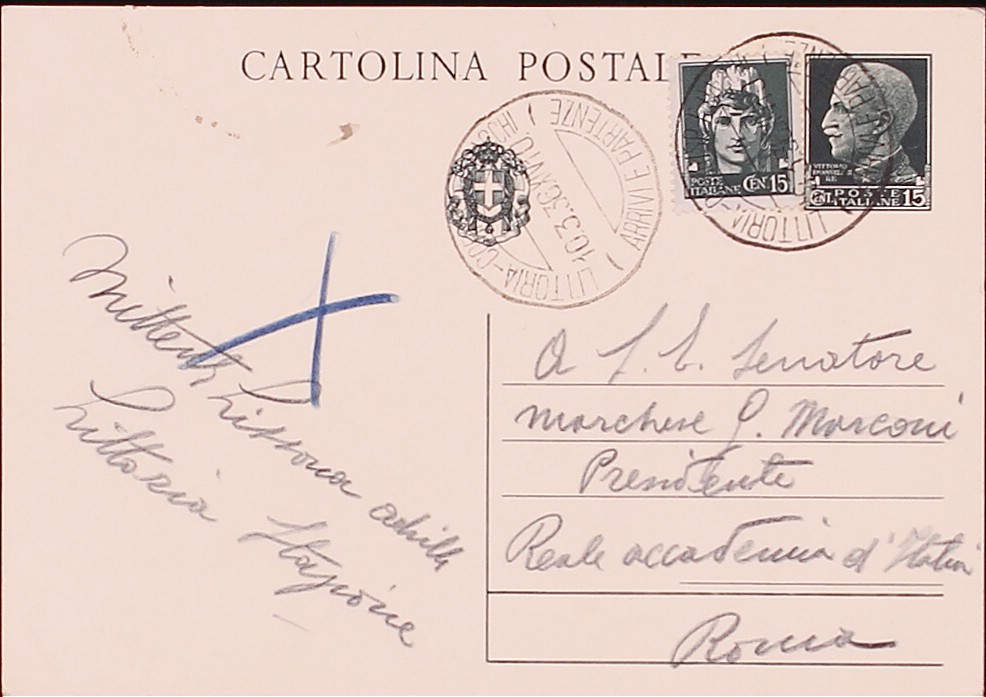 CARTOLINA POSTALE
POSTE ITALIANE CEN. 15
VITTORIO EMANUELE III RE
POSTE ITALIANE
CENT. 15
LITTORIA
ARRIVI E PARTENZE
10.3.36 XIV
LITTORIA
A S. E. Senatore
Marchese G. Marconi
Presidente
Reale Accademia d'Italia
Roma
Mittente Lissona Achille
Littoria Stazione